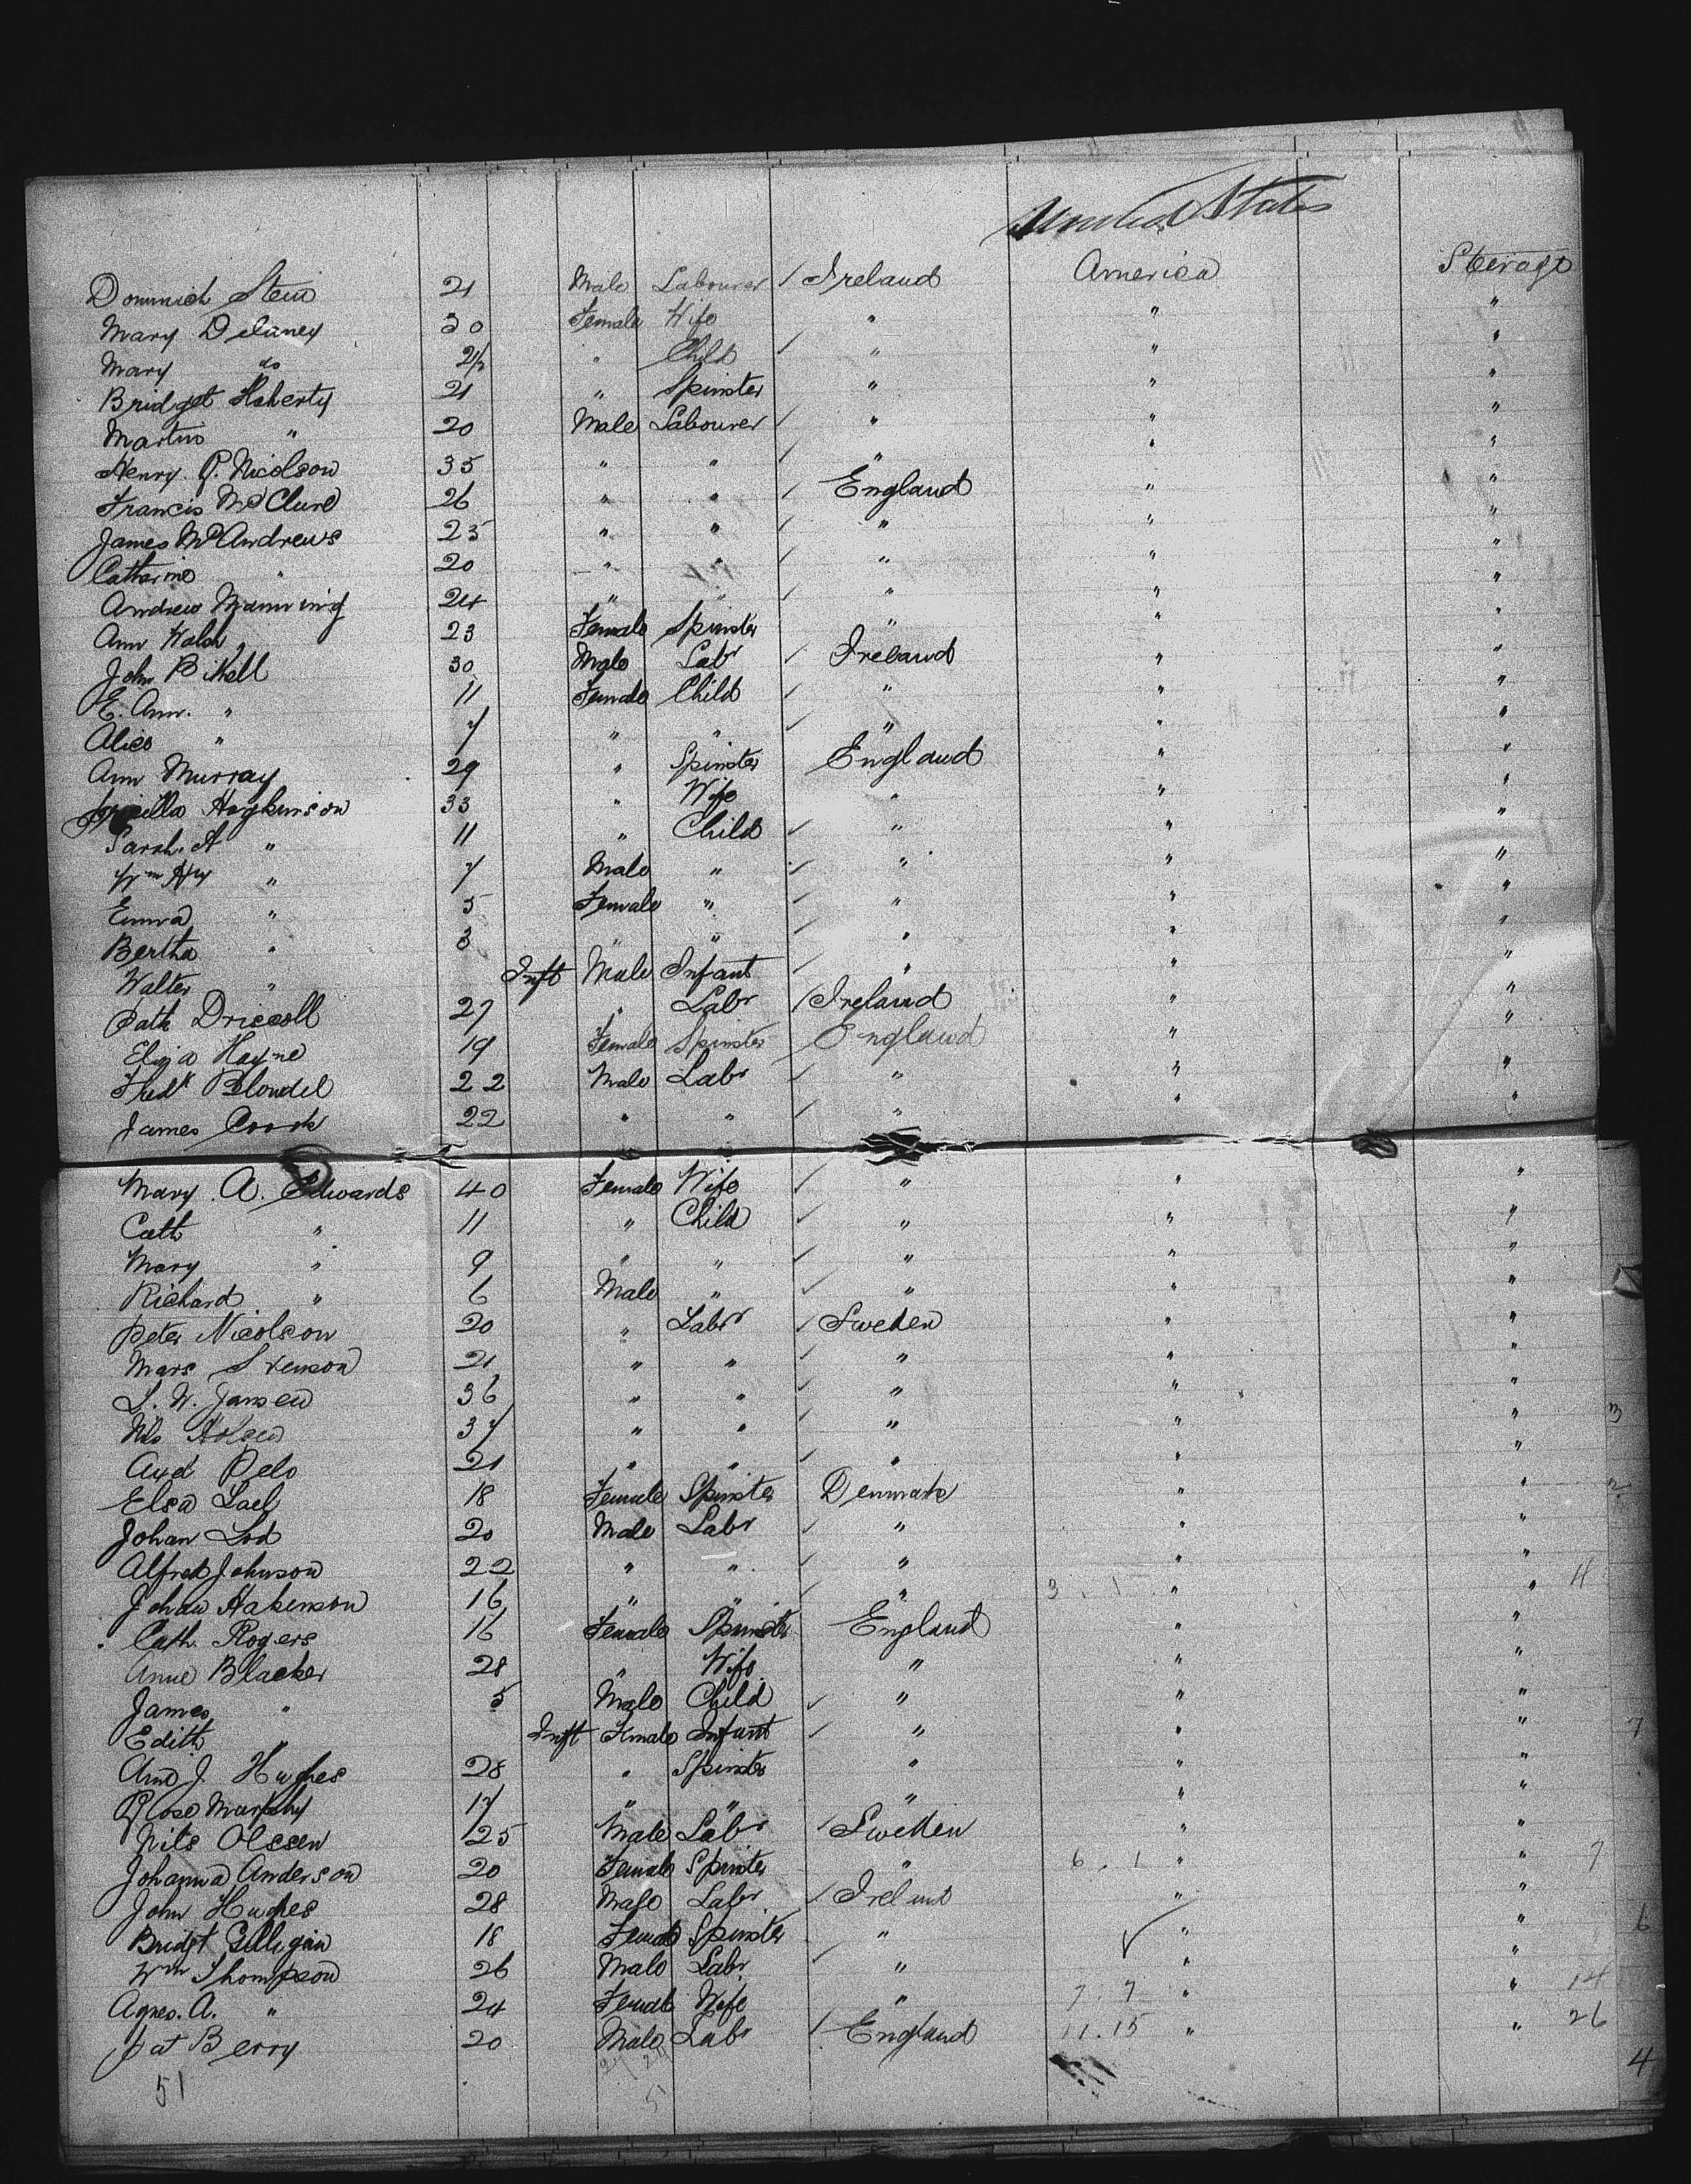 United States
Dominich Stein 21 Male Labourer / Ireland America Steerage
Mary Delaney 30 Female Wife " " "
Mary do " Child / " " "
Bridget Flaherty 21 " Spinster " " "
Martin " 20 Male Labourer / " " "
Henry. P. Nicolson 35 " " / " " "
Francis McClure 26 " " / England " "
James McAndrews 25 " " / " " "
Catherine " 20 " " / " " "
Andrew Manning 24 " " / " " "
Ann Walsh 23 Female Spinster " " "
John Bikell 30 Male Labr / Ireland " "
E. Ann. " 11 Female Child / " " "
Alice " 7 " " / " " "
Ann Murray 29 " Spinster England " "
Hogkinson 33 " Wife " " "
Sarah. A " 11 " Child / " " "
Wm Hy " 7 Male " / " " "
Emma " 5 Female " / " " "
Bertha " 3 " " / " " "
Walter " Inft Male Infant / " " "
Patk Driscoll 27 " Labr / Ireland " "
Eliza Hayne 19 Female Spinster England " "
Fredk Blondel 22 Male Labr / " " "
James Cook 22 " " / " " "
Mary. A. Edwards 40 Female Wife / " " "
Cath " 11 " Child / " " "
Mary " 9 " " / " " "
Richard " 6 Male " / " " "
Peter Nicolson 20 " Labr / Sweden " "
Mars Svenson 21 " " / " " "
L. W. Jansen 36 " " / " " "
Nils 37 " " / " " "
Axel Pelo 21 " " / " " "
Elsa Lael 18 Female Spinster Denmark " "
Johan Lod 20 Male Labr / " " "
Alfred Johnson 22 " " / " " "
Johan Hakenson 16 " " / " 3. 1 " " 4
Cath. Rogers 16 Female Spinster England " "
Anne Blacker 28 " Wife " " "
James " 5 Male Child / " " "
Edith " Inft Female Infant / " " "
Ann J. Hughes 28 " Spinster " " "
Rose Murphy 17 " " " " "
Nils Olssen 25 Male Labr / Sweden " "
Johanna Anderson 20 Female Spinster " 6. 1 " " 7
John Hughes 28 Male Labr / Ireland " "
Bridgt Gilligan 18 Female Spinster " " "
Wm Thompson 26 Male Labr / " ✓ " "
Agnes. A. " 24 Female Wife " 7. 7 " " 14
Pat Berry 20 Male Labr / England 11. 15 " " 26
51 27 24
51